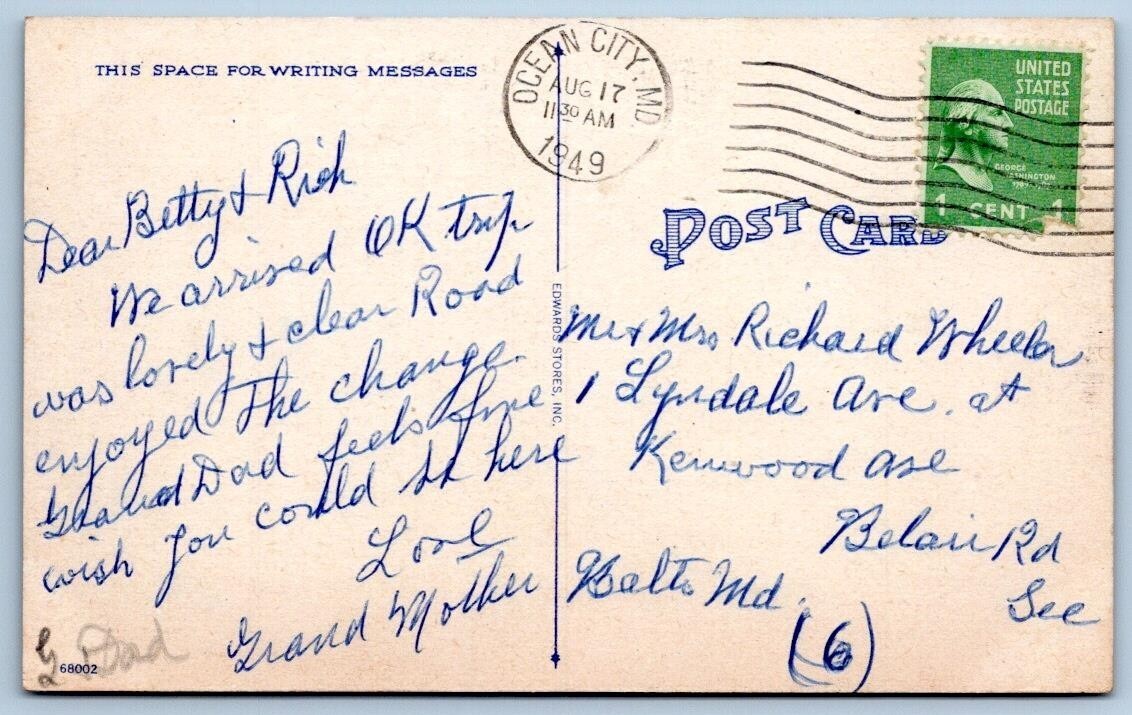 THIS SPACE FOR WRITING MESSAGES
OCEAN CITY, MD
AUG 17
11 30 AM
1949
UNITED
STATES
POSTAGE
GEORGE
WASHINGTON
1 CENT 1
POST CARD
Dear Betty & Rich
We arrived OK trip
was lovely & clear Road
enjoyed The change.
Grand Dad feels fine
wish you could be here
Love
Grand Mother
G Dad
68002
EDWARDS STORES, INC.
Mr & Mrs Richard Wheeler
1 Lyndale Ave. at
Kenwood Ave
Belair Rd
Balto Md.
(6)